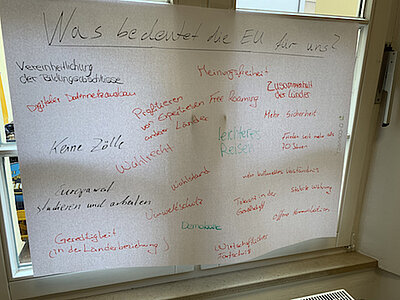 Was bedeutet die EU für uns?
Vereinheitlichung
der Bildungsabschlüsse
Meinungsfreiheit
Zusammenhalt
der Länder
Digitaler Datennetzausbau
Profitieren
von Expertisen
anderer Länder
Free Roaming
Mehr Sicherheit
Keine Zölle
leichteres
Reisen
Frieden seit mehr als
70 Jahren
Wahlrecht
Wohlstand
europaweit
studieren und arbeiten
Umweltschutz
Toleranz in der
Gesellschaft
stabile Währung
offene Kommunikation
Demokratie
Gerechtigkeit
(in der Länderbeziehung)
Wirtschaftlicher
Fortschritt